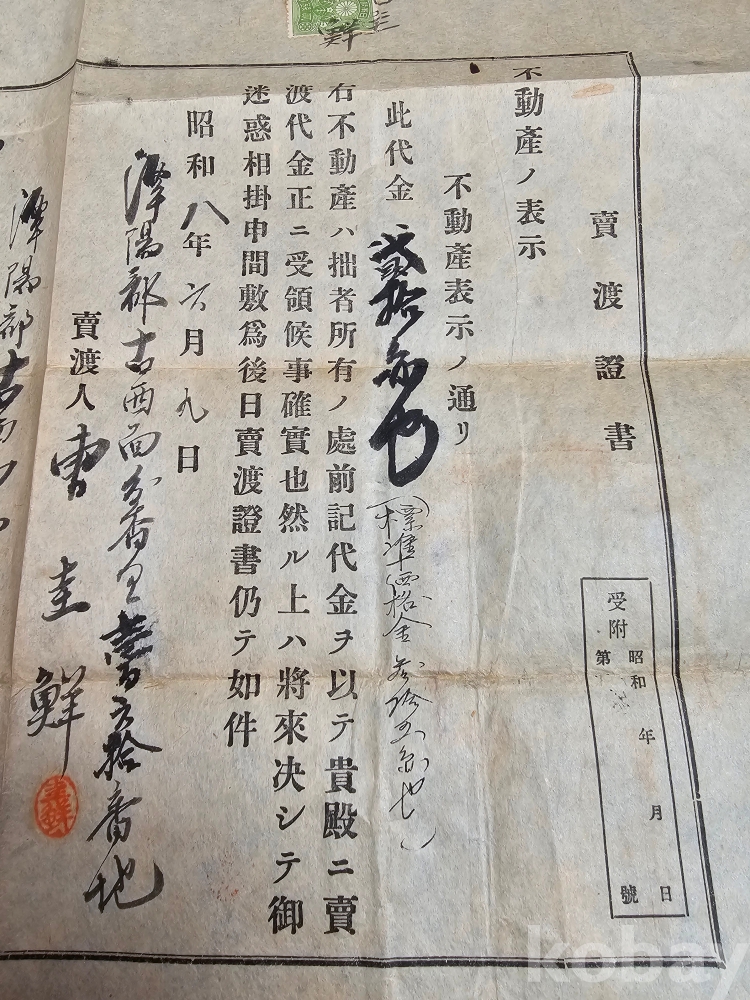 賣渡證書
受附
昭和 年 月 日
第 號
不動產ノ表示
不動產表示ノ通リ
此代金 貳拾
(標準価格金 也)
右不動產ハ拙者所有ノ處前記代金ヲ以テ貴殿ニ賣
渡代金正ニ受領候事確實也然ル上ハ將來决シテ御
迷惑相掛申間敷爲後日賣渡證書仍テ如件
昭和八年六月九日
潭陽郡古西面分香里 拾番地
賣渡人 曺圭鮮
潭陽郡古
鮮